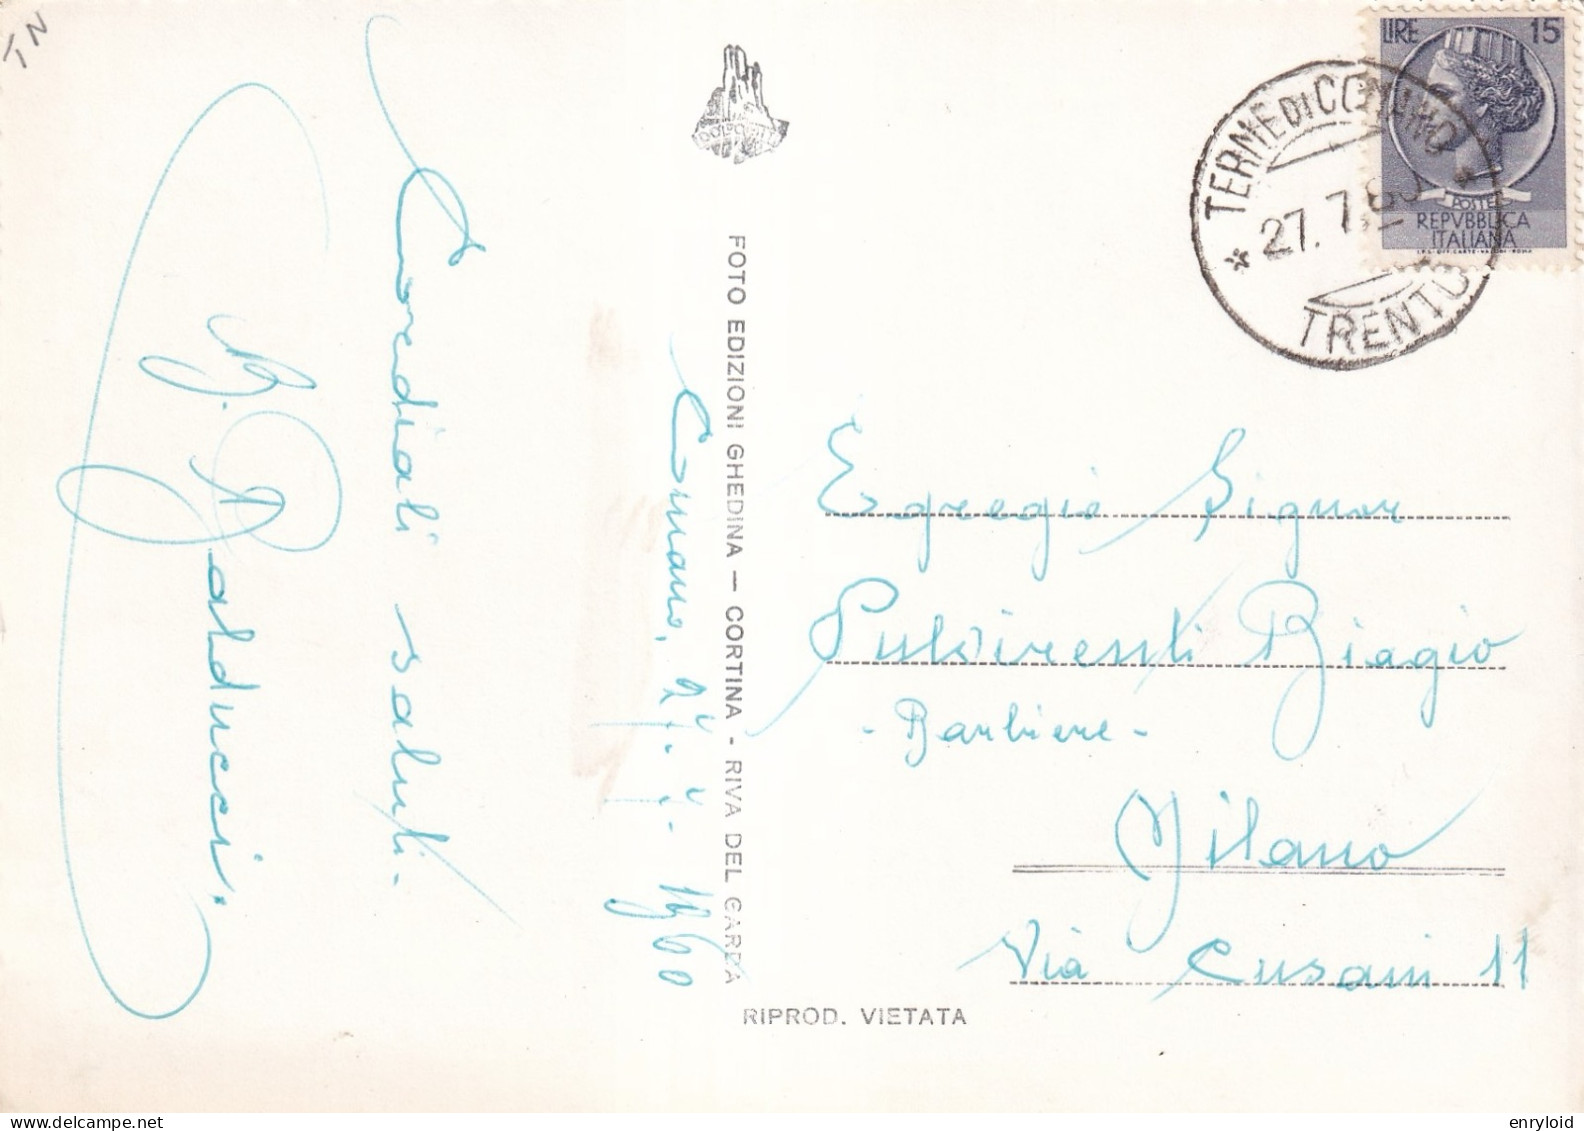 TN
Cordiali saluti.
B. Balducci.
DOLOMITI
FOTO EDIZIONI GHEDINA — CORTINA - RIVA DEL GARDA
Comano, 27.7.1960
RIPROD. VIETATA
LIRE 15
POSTE
REPVBBLICA
ITALIANA
I.P.S. OFF. CARTE-VALORI-ROMA
TERME DI COMANO
* 27.7.60 *
TRENTO
Egregio Signor
Pulvirenti Biagio
- Barbiere -
Milano
Via Cusani 11
enryloid